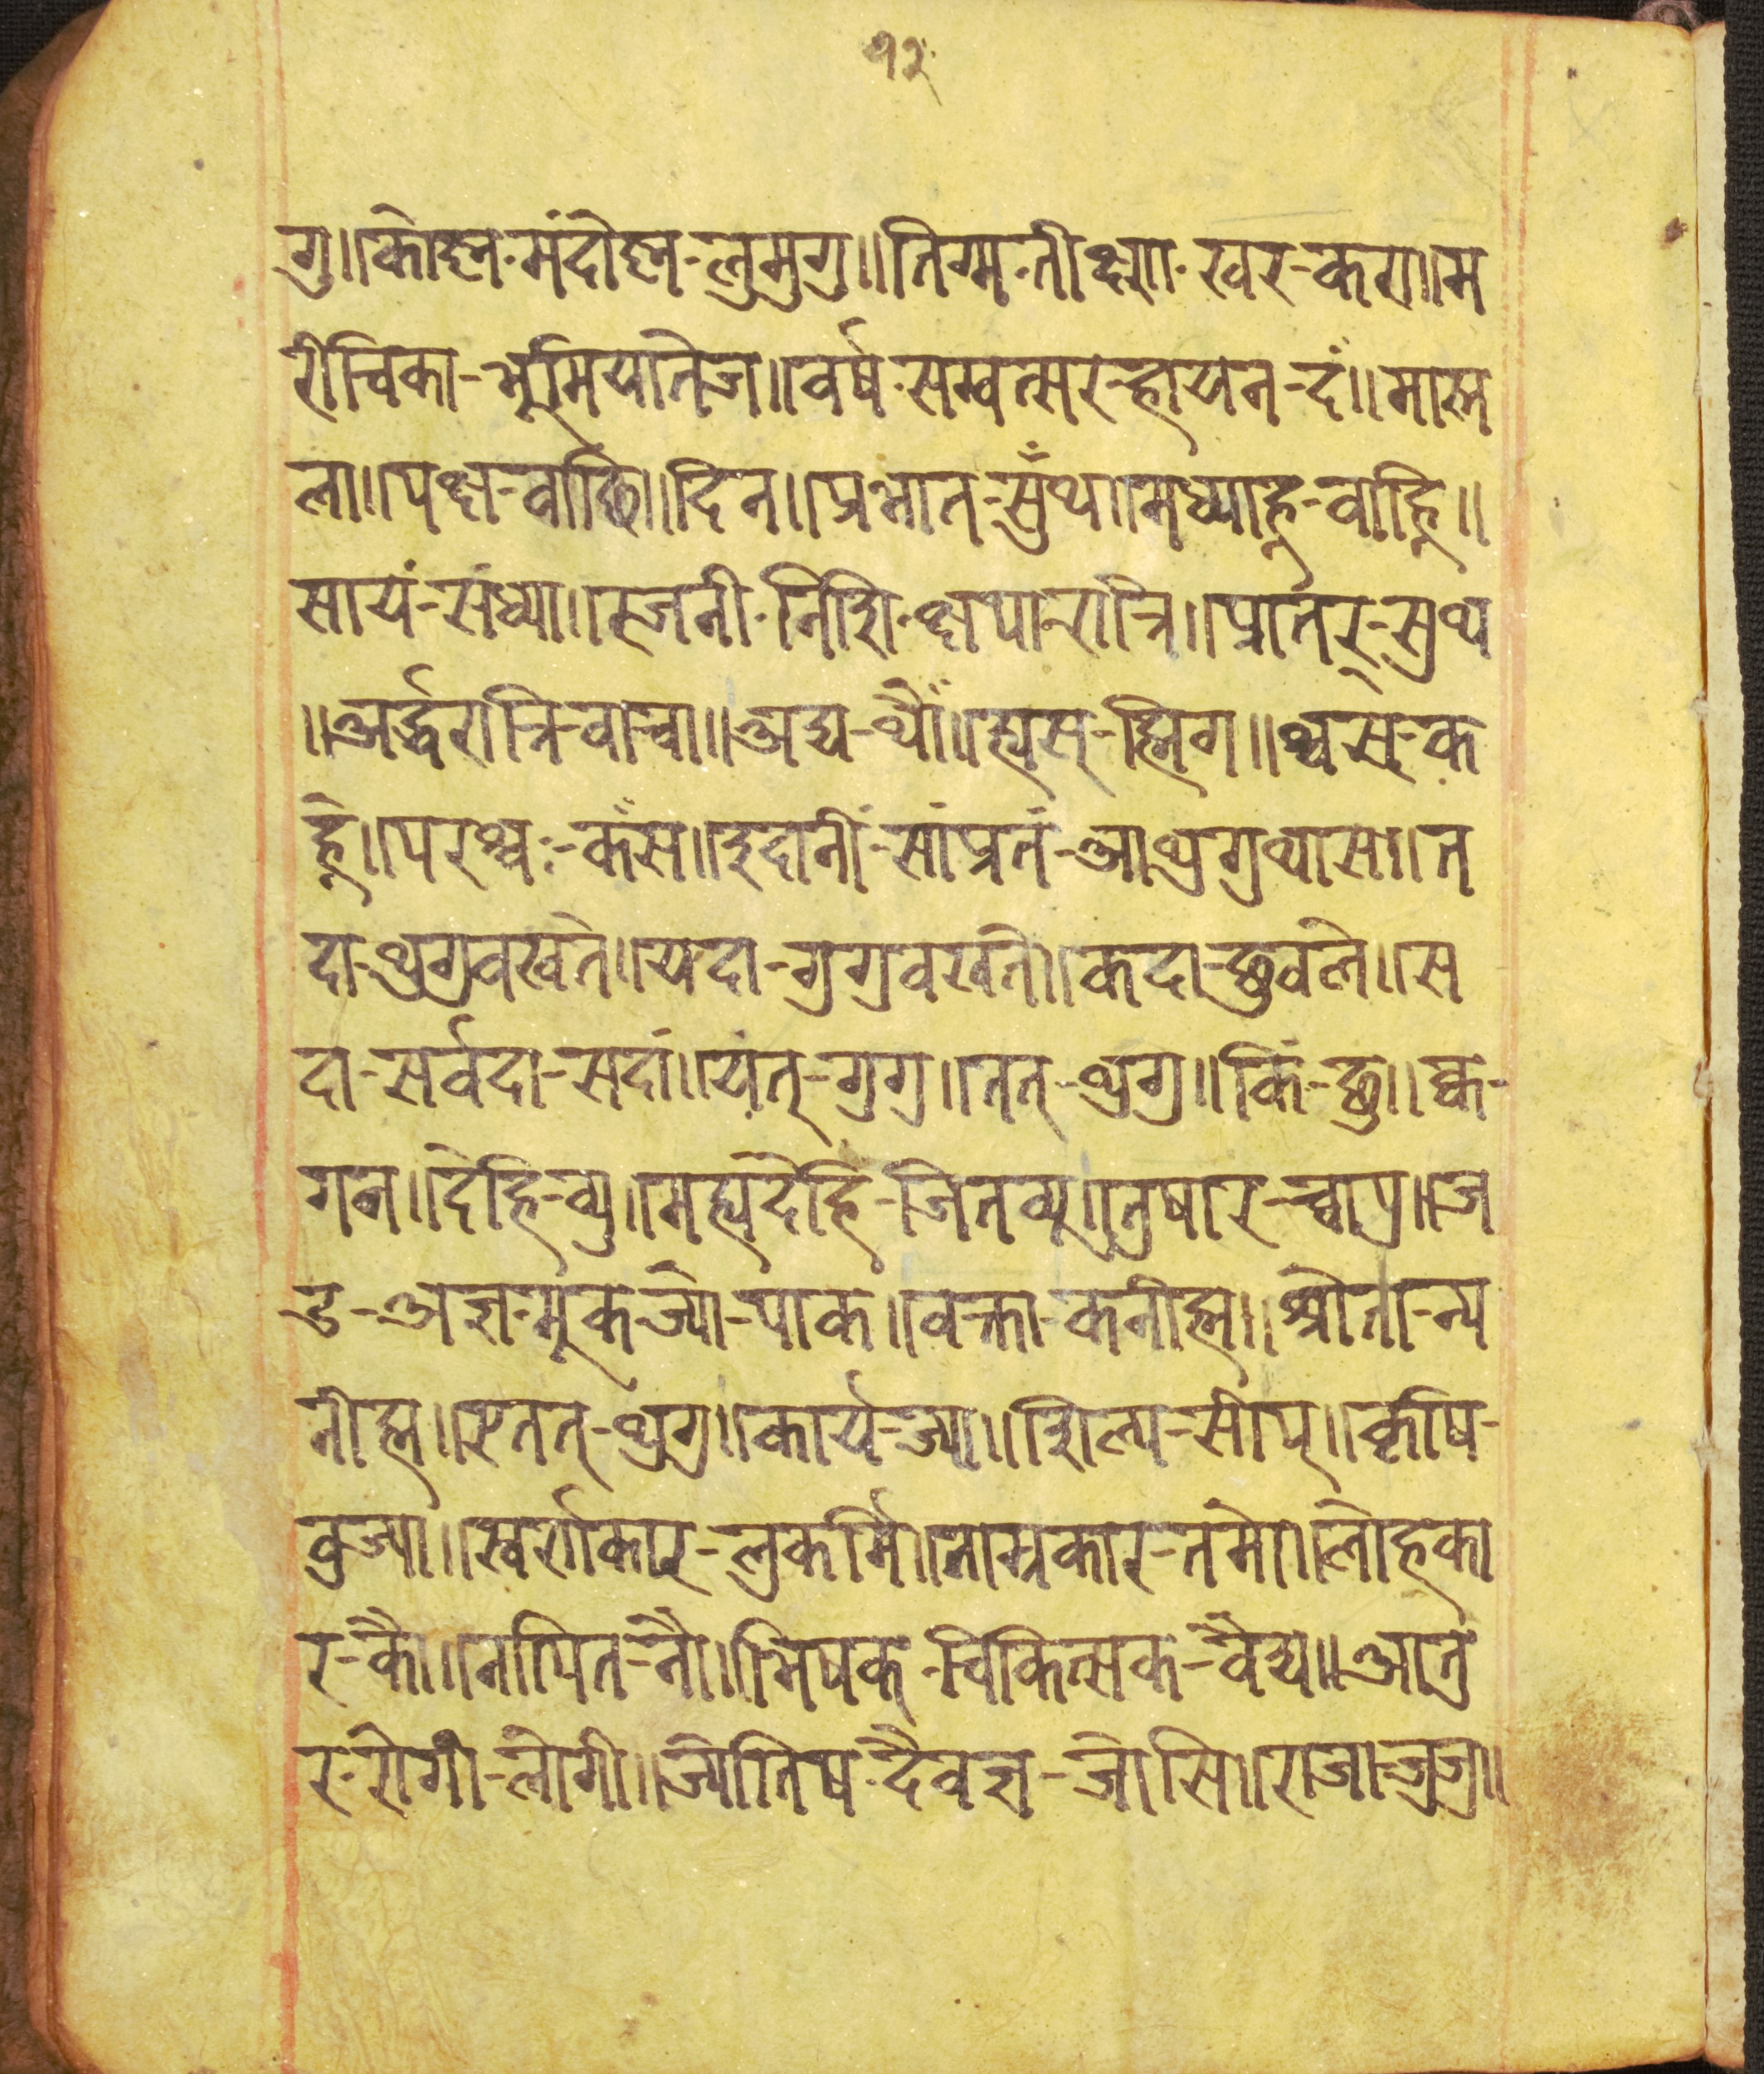 १२
गु॥कोष्ण-मंदोष्ण-लुमुगु॥तिग्म-तीक्ष्ण-खर-कडा॥म
रीचिका-भूमियातेज॥वर्ष-सम्वत्सर-हायन-दं॥मास
ला॥पक्ष-वाछि॥दिन॥प्रभात-सुँथ॥मध्याह्न-वाह्नि॥
सायं-संध्या॥रजनी-निशि-क्षपा-रात्रि॥प्रातर्-सुथ
॥अर्द्धरात्रि-वाचा॥अद्य-थौं॥ह्यस्-ह्मिग॥श्वस्-क
ह्ने॥परश्वः-कंस॥इदानीं-सांप्रतं-आथुगुथास॥त
दा-थुगुवखते॥यदा-गुगुवखते॥कदा-छुवले॥स
दा-सर्वदा-सदां॥यत्-गुगु॥तत्-थुगु॥किं-छु॥क्व-
गन॥देहि-व्यु॥मह्यंदेहि-जितव्यु॥तुषार-च्वापु॥ज
ड-अज्ञ-मूक-ज्या-पाक॥वक्ता-कनीह्म॥श्रोता-न्य
नीह्म॥एतत्-थुगु॥कार्य-ज्या॥शिल्प-सीप्॥कृषि-
वुज्या॥स्वर्णकार-लुकर्मि॥ताम्रकार-तमो॥लोहका
र-कौ॥नापित-नौ॥भिषक्-चिकित्सक-वैद्य॥आतु
र-रोगी-लोगी॥ज्योतिष-दैवज्ञ-जोसि॥राजा-जुजु॥